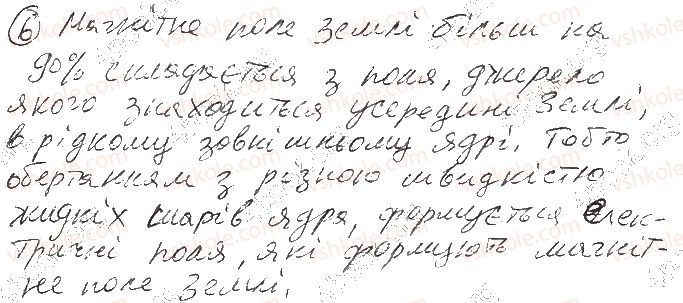 6 Магнітне поле Землі більш на
90% складається з поля, джерело
якого знаходиться усередині Землі,
в рідкому зовнішньому ядрі. Тобто
обертанням з різною швидкістю
жидкіх шарів ядра, формується елек-
тричні поля, які формують магніт-
не поле Землі.